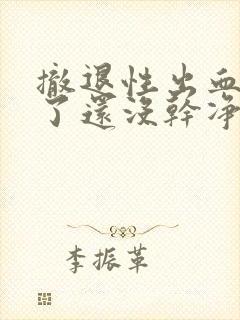 撤退性出血
了還沒幹淨
李振革